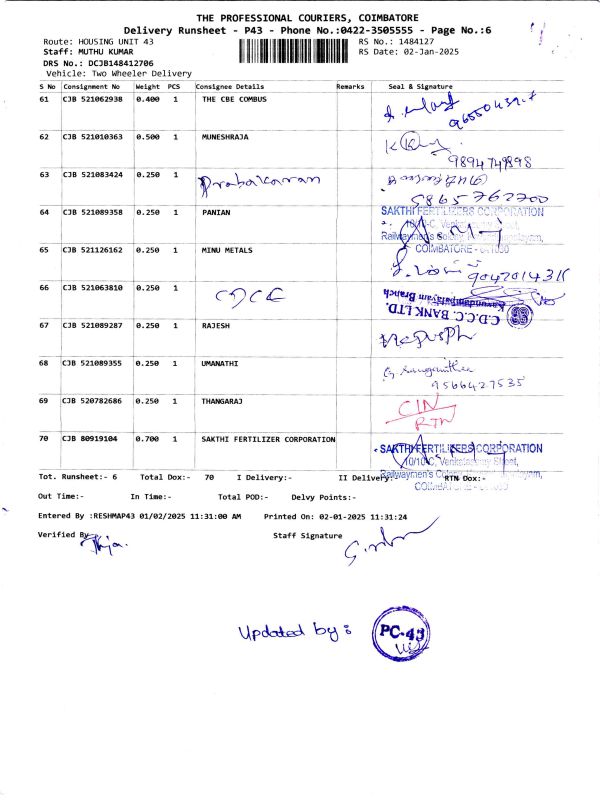 THE PROFESSIONAL COURIERS, COIMBATORE
Delivery Runsheet - P43 - Phone No.:0422-3505555 - Page No.:6
Route: HOUSING UNIT 43 RS No.: 1484127
Staff: MUTHU KUMAR RS Date: 02-Jan-2025
DRS No.: DCJB148412706
Vehicle: Two Wheeler Delivery
S No Consignment No Weight PCS Consignee Details Remarks Seal & Signature
61 CJB 521062938 0.400 1 THE CBE COMBUS
62 CJB 521010363 0.500 1 MUNESHRAJA
9894749898
63 CJB 521083424 0.250 1 Prabakaran
9865762700
64 CJB 521089358 0.250 1 PANIAN SAKTHI FERTILIZERS CORPORATION
COIMBATORE - 641030
65 CJB 521126162 0.250 1 MINU METALS
66 CJB 521063810 0.250 1 CDCC
Kavundampalayam Branch
C.D.C.C. BANK LTD.
67 CJB 521089287 0.250 1 RAJESH
68 CJB 521089355 0.250 1 UMANATHI
9566427535
69 CJB 520782686 0.250 1 THANGARAJ CIN
RTN
70 CJB 80919104 0.700 1 SAKTHI FERTILIZER CORPORATION SAKTHI FERTILIZERS CORPORATION
10/10-C, Venkatasamy Street,
Tot. Runsheet:- 6 Total Dox:- 70 I Delivery:- II Delivery:- RTN Dox:-
Out Time:- In Time:- Total POD:- Delvy Points:-
Entered By :RESHMAP43 01/02/2025 11:31:00 AM Printed On: 02-01-2025 11:31:24
Verified By Staff Signature
Updated by: PC-43